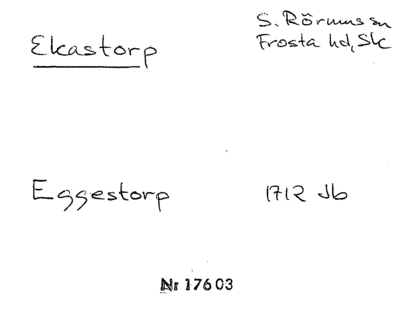 Ekastorp
S. Rörums sn
Frosta hd, Sk
Eggestorp
1712 Jb
Nr 17603